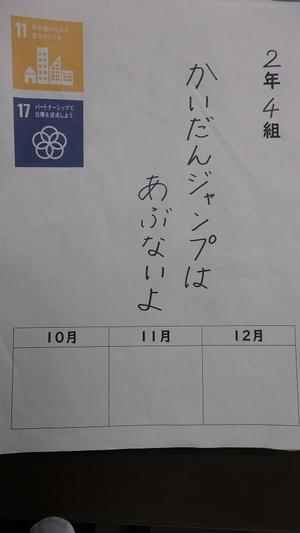 2年4組
かいだんジャンプは
あぶないよ
11 住み続けられる
まちづくりを
17 パートナーシップで
目標を達成しよう
10月 11月 12月